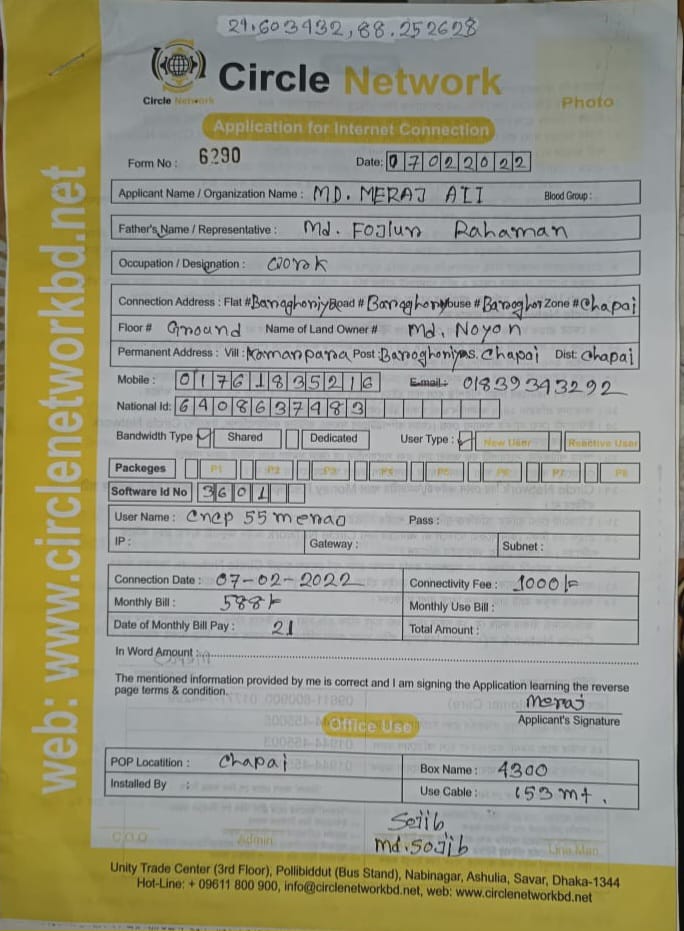 24.603432, 88.252628
Circle Network
Circle Network
Photo
Application for Internet Connection
Form No : 6290 Date: 07022022
Applicant Name / Organization Name : MD. MERAJ ALI Blood Group :
Father's Name / Representative : Md. Fojlur Rahaman
Occupation / Designation : Work
Connection Address : Flat # Baroghoriya Road # Baroghoriya House # Baroghor Zone # Chapai
Floor # Ground Name of Land Owner # Md. Noyon
Permanent Address : Vill : Komarpara Post : Baroghoriya Ps. Chapai Dist: Chapai
Mobile : 01761835216 E-mail : 01839343292
National Id: 6408637483
Bandwidth Type Shared Dedicated User Type : New User Reactive User
Packeges P1 P2 P3 P4 P5 P6 P7 P8
Software Id No 3601
User Name : cncp 55 merao Pass :
IP : Gateway : Subnet :
Connection Date : 07-02-2022 Connectivity Fee : 1000/=
Monthly Bill : 588/= Monthly Use Bill :
Date of Monthly Bill Pay : 21 Total Amount :
In Word Amount :
The mentioned information provided by me is correct and I am signing the Application learning the reverse
page terms & condition.
Meraj
Applicant's Signature
Office Use
POP Locatition : Chapai Box Name : 4300
Installed By : Use Cable : 153 mt.
Sojib
Md. Sojib
C.O.O Admin Line Man
Unity Trade Center (3rd Floor), Pollibiddut (Bus Stand), Nabinagar, Ashulia, Savar, Dhaka-1344
Hot-Line: + 09611 800 900, info@circlenetworkbd.net, web: www.circlenetworkbd.net
web: www.circlenetworkbd.net